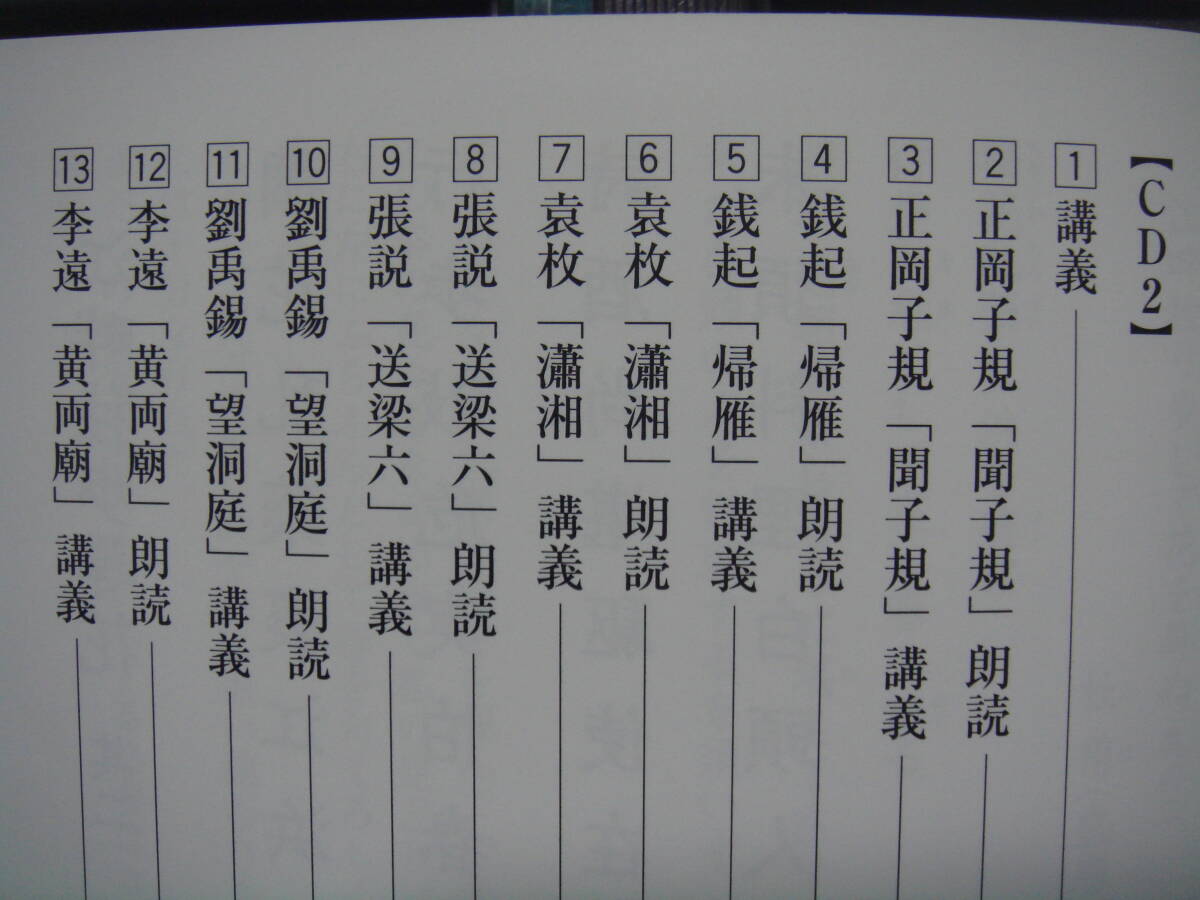 【CD2】
1 講義
2 正岡子規「聞子規」朗読
3 正岡子規「聞子規」講義
4 銭起「帰雁」朗読
5 銭起「帰雁」講義
6 袁枚「瀟湘」朗読
7 袁枚「瀟湘」講義
8 張説「送梁六」朗読
9 張説「送梁六」講義
10 劉禹錫「望洞庭」朗読
11 劉禹錫「望洞庭」講義
12 李遠「黄両廟」朗読
13 李遠「黄両廟」講義